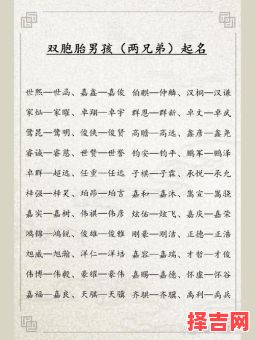 双胞胎男孩（两兄弟）起名
世熙—世函、嘉鑫—嘉俊 伯麒—仲麟、汉桐—汉谦
家灿—家曜、卓翔—卓宇 群恩—群新、卓文—卓武
鹭昆—鹭明、俊侠—俊贤 高瞻—高远、鑫彦—鑫尧
睿诚—睿慈、世贤—世誉 钧安—钧平、鹏军—鹏泽
卓群—超远、任重—远行 子棋—子霖、承祝—承允
梓强—梓昊、珀昂—珀言 嘉和—嘉沐、嵩宣—嵩骁
嘉实—嘉树、伟祺—伟彦 炫佑—炫飞、嘉庆—嘉荣
鸿锦—鸿锐、俊雄—俊雅 刚豪—刚洁、正德—正浩
旭威—旭瀚、洋仁—洋培 嘉容—嘉瑞、才哲—才俊
伟博—伟毅、豪耀—豪伟 嘉赐—嘉德、怀虚—怀谷
嘉福—嘉良、天骐—天骥 齐骐—齐骥、禹利—禹兵
择吉网